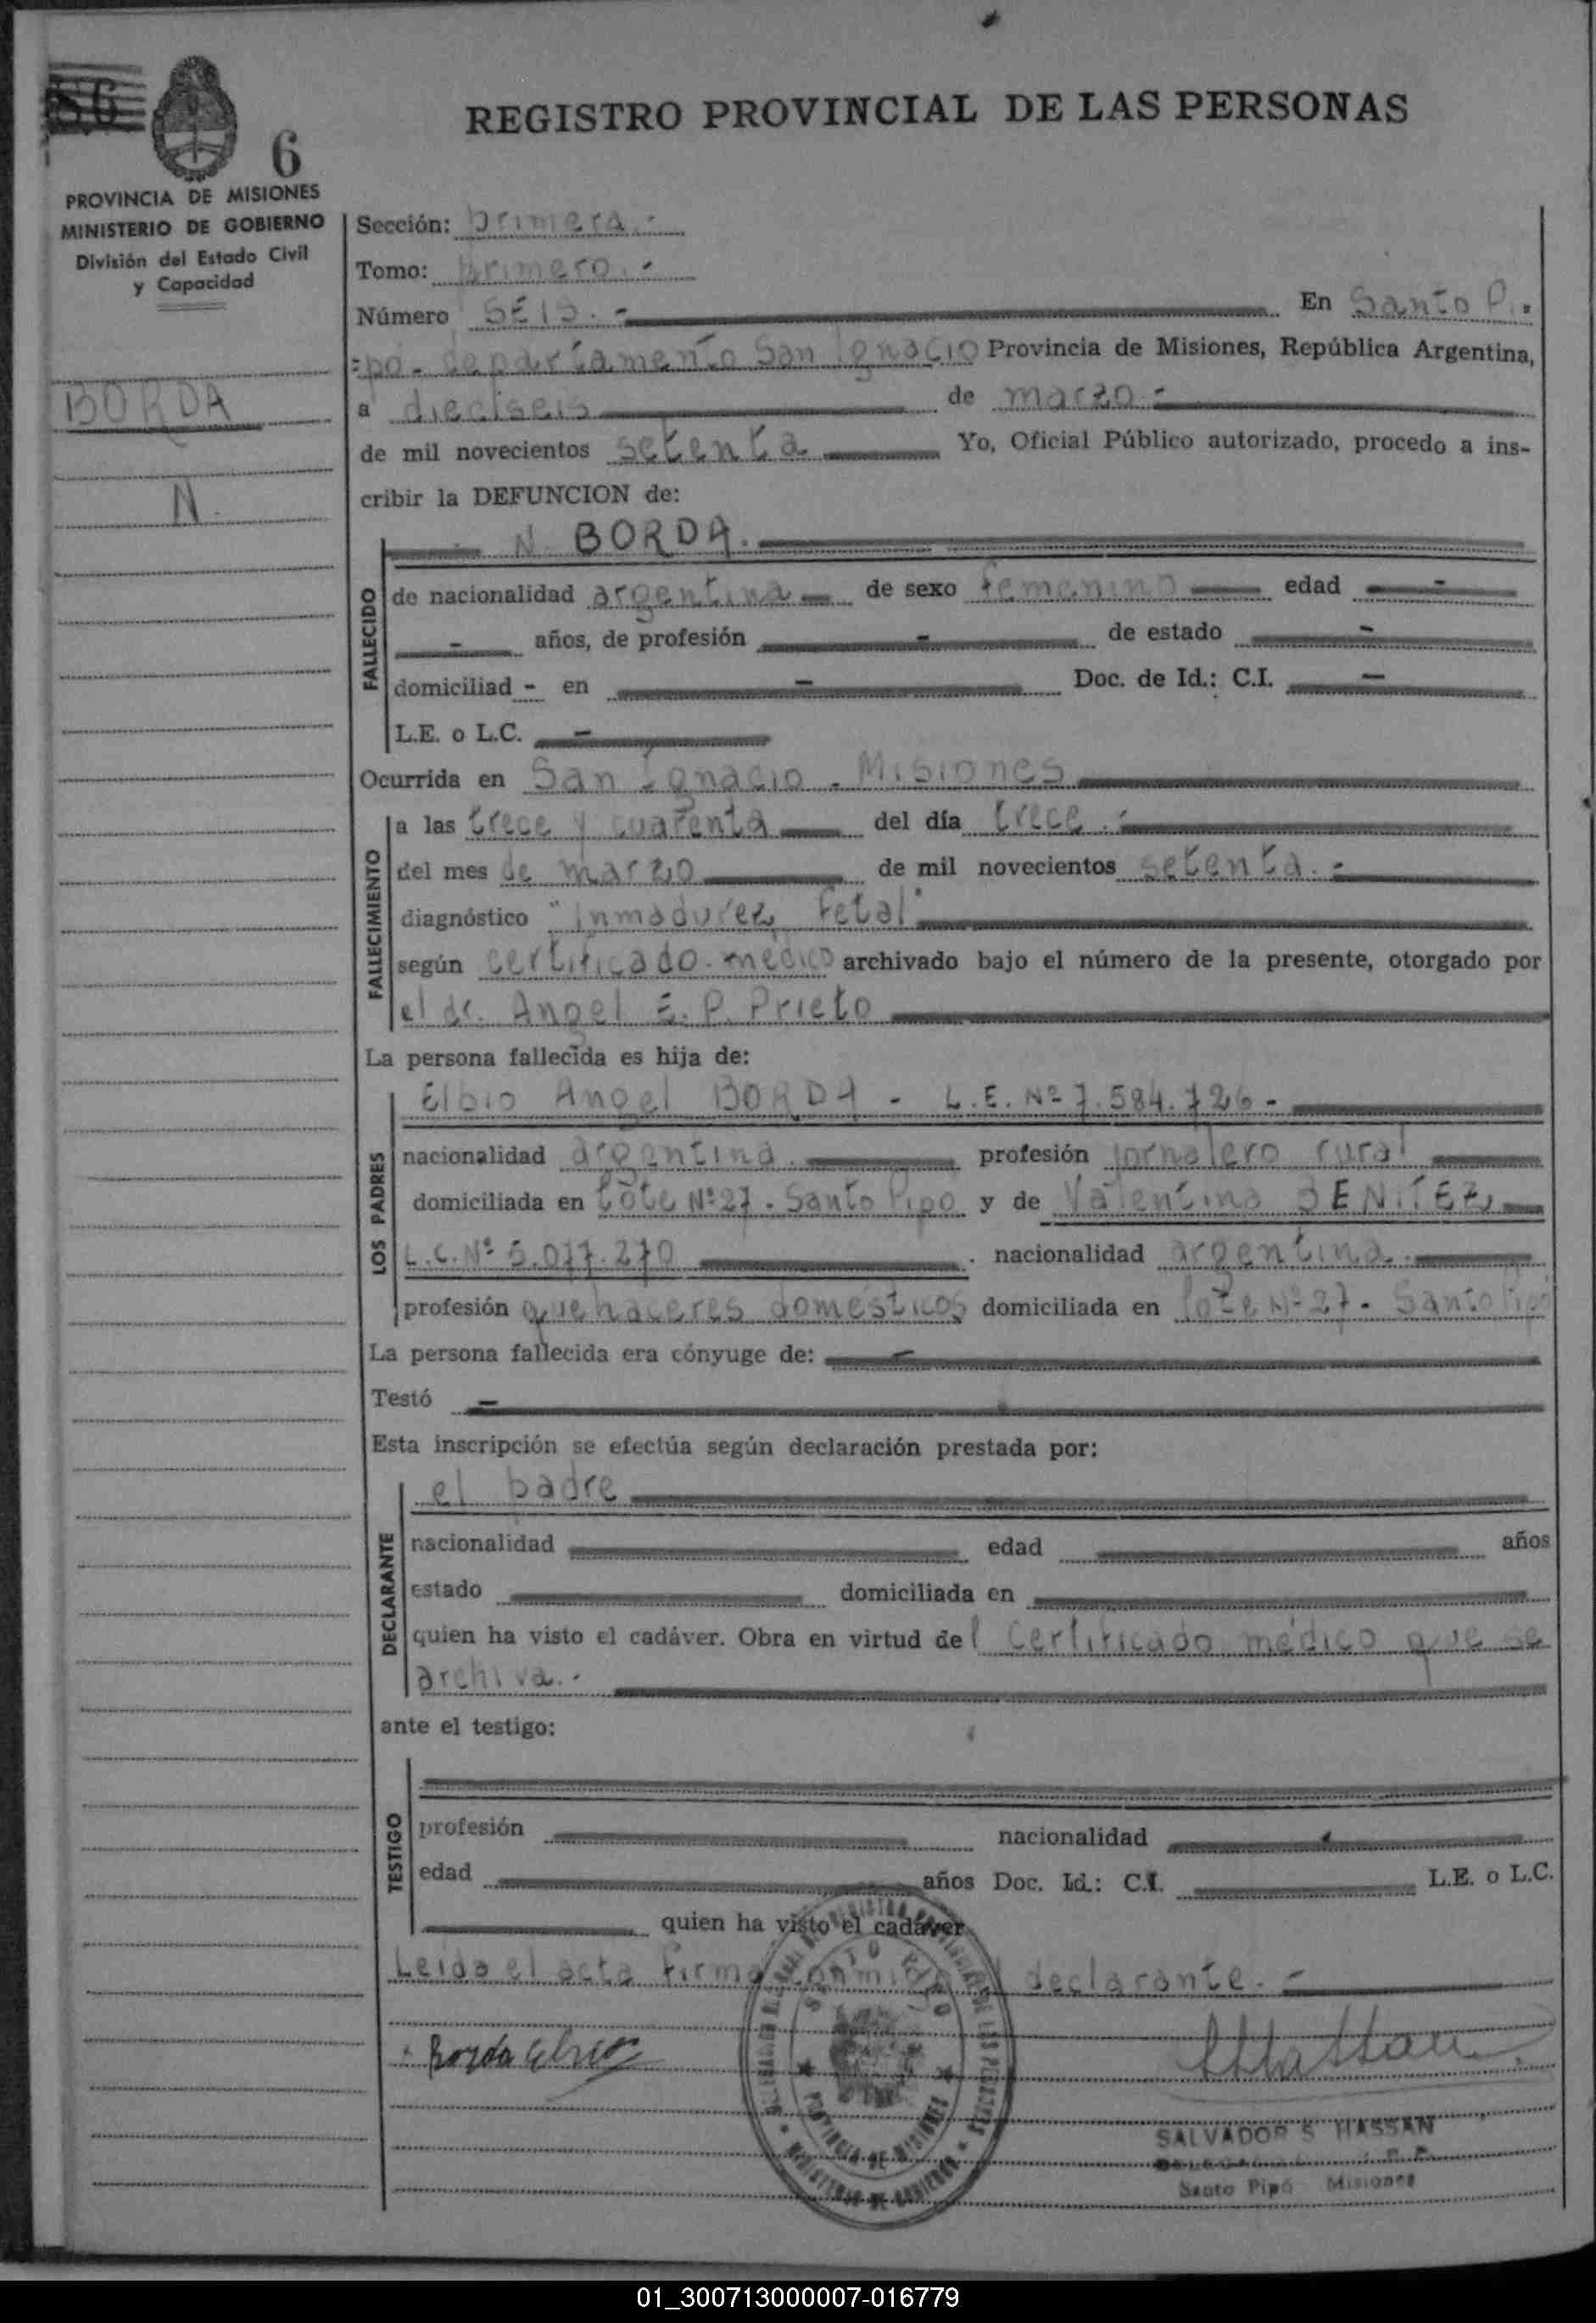 REGISTRO PROVINCIAL DE LAS PERSONAS
6
PROVINCIA DE MISIONES
MINISTERIO DE GOBIERNO
División del Estado Civil
y Capacidad
BORDA
N.
Sección: primera.-
Tomo: primero.-
Número SEIS.- En Santo Pi-
=pó- departamento San Ignacio Provincia de Misiones, República Argentina,
a dieciseis de marzo.-
de mil novecientos setenta Yo, Oficial Público autorizado, procedo a ins-
cribir la DEFUNCION de:
N. BORDA.
FALLECIDO
de nacionalidad argentina de sexo femenino edad -
- años, de profesión - de estado -
domiciliad - en - Doc. de Id.: C.I. -
L.E. o L.C. -
Ocurrida en San Ignacio - Misiones
FALLECIMIENTO
a las trece y cuarenta del día trece.-
del mes de marzo de mil novecientos setenta.-
diagnóstico "Inmadurez Fetal"
según certificado médico archivado bajo el número de la presente, otorgado por
el dr. Angel E. P. Prieto
La persona fallecida es hija de:
LOS PADRES
Elbio Angel BORDA - L.E. Nº 7.584.726-
nacionalidad argentina. profesión jornalero rural
domiciliada en lote Nº 27 - Santo Pipo y de Valentina BENITEZ
L.C. Nº 5.077.270 . nacionalidad argentina.
profesión quehaceres domésticos domiciliada en lote Nº 27 - Santo Pipó
La persona fallecida era cónyuge de: -
Testó -
Esta inscripción se efectúa según declaración prestada por:
DECLARANTE
el padre
nacionalidad edad años
estado domiciliada en
quien ha visto el cadáver. Obra en virtud del certificado médico que se
archiva.-
ante el testigo:
TESTIGO
profesión nacionalidad
edad años Doc. Id.: C.I. L.E. o L.C.
quien ha visto el cadáver
Leída el acta firma conmigo el declarante.-
Borda Elbio
SANTO PIPO
PROVINCIA DE MISIONES
MINISTERIO DE GOBIERNO
SALVADOR S HASSAN
Santo Pipó Misiones
01_300713000007-016779